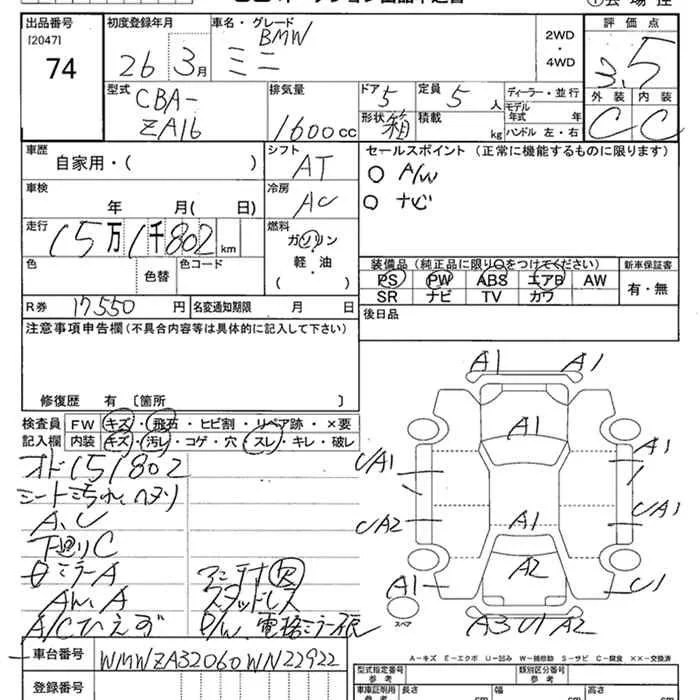 出品番号
[2047]
74
初度登録年月
26 3月
車名・グレード
BMW
ミニ
2WD
・
4WD
評価点
3.5
外装 内装
C C
型式
CBA-
ZA16
排気量
1600cc
ドア
5
定員
5人
形状
箱
積載
kg
ディーラー・並行
モデル年式 年
ハンドル 左・右
車歴
自家用・( )
シフト
AT
車検
年 月( 日)
冷房
AC
走行
15万1千802km
燃料
ガソリン
・
軽・油
( )
色
色替
色コード
R券 17,550円
名変通知期限 月 日
セールスポイント (正常に機能するものに限ります)
○ A/W
○ ナビ
装備品(純正品に限り○をつけてください)
PS PW ABS エアB AW
SR ナビ TV カワ
新車保証書
有・無
後日品
注意事項申告欄(不具合内容等は具体的に記入して下さい)
修復歴 有 [箇所 ]
検査員
記入欄
FW キズ・飛石・ヒビ割・リペア跡・×要
内装 キズ・汚レ・コゲ・穴・スレ・キレ・破レ
オド151802
シート汚れ、ヘタリ
A、U
下廻りC
ミラーA
A/Cひえず
アンテナ欠
スタッドレス
P/W、電格ミラー
A1 A1
A1
A1
UA1
UA1
UA2
A1
A2
A1
U1
A3 U1 A2
スペア
A-キズ E-エクボ U-凹み W-補修跡 S-サビ C-腐食 ××-交換済
車台番号
WMWZA32060WN22922
登録番号
型式指定番号
参考
類別区分番号
参考
車庫証明用
参考
長さ cm
幅 cm
高さ cm